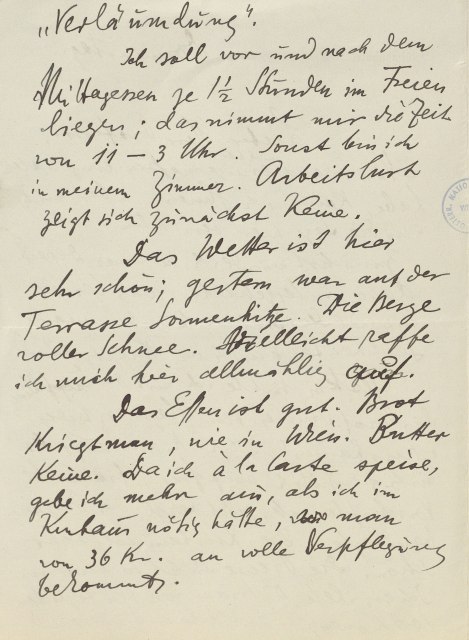 „Verläumdung“.
Ich soll vor und nach dem
Mittagessen je 1½ Stunden im Freien
liegen; das nimmt mir die Zeit
von 11 – 3 Uhr. Sonst bin ich
in meinem Zimmer. Arbeitslust
zeigt sich zunächst keine.
Das Wetter ist hier
sehr schön; gestern war auf der
Terrasse Sonnenhitze. Die Berge
voller Schnee. Vielleicht raffe
ich mich hier allmählig auf.
Das Essen ist gut. Brot
kriegt man, wie in Wien. Butter
keine. Da ich à la Carte speise,
gebe ich mehr aus, als ich im
Kurhaus nötig hätte, wo man
von 36 Kr. an volle Verpflegung
bekommt.